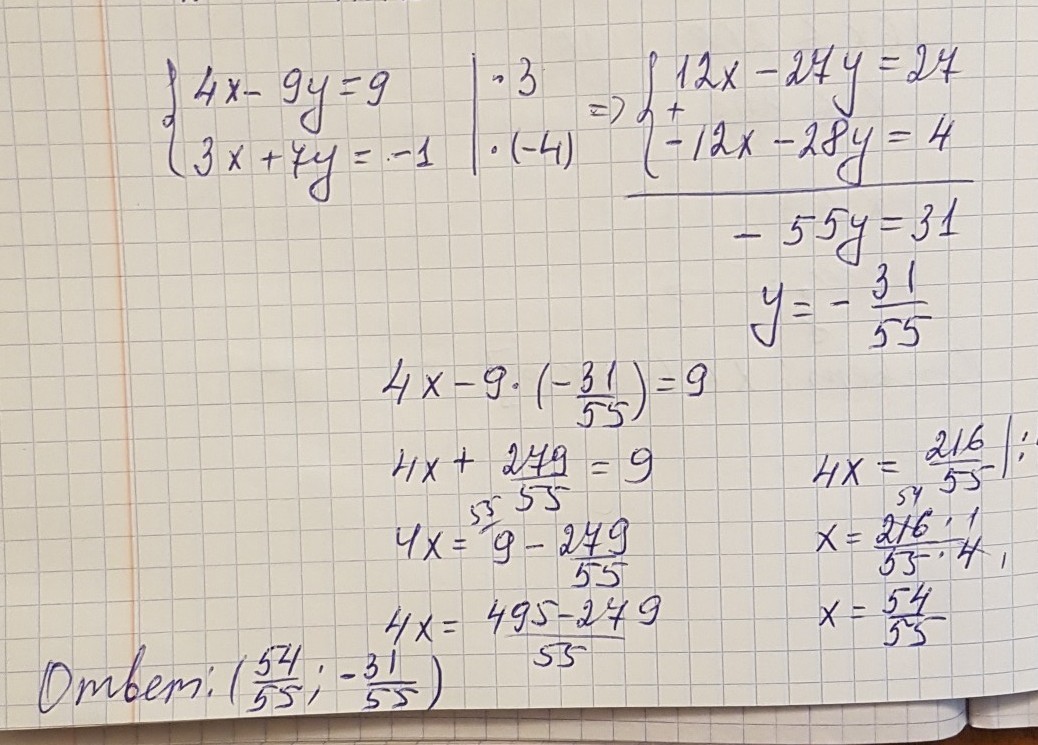 { 4x - 9y = 9 | · 3 => { 12x - 27y = 27
{ 3x + 7y = -1 | · (-4) + { -12x - 28y = 4
- 55y = 31
y = - 31/55
4x - 9 · (- 31/55) = 9
4x + 279/55 = 9
4x = 9 - 279/55
55
4x = 495 - 279 / 55
4x = 216/55 | :
54
x = 216 · 1 / 55 · 4 1
x = 54/55
Ответ: (54/55 ; - 31/55)